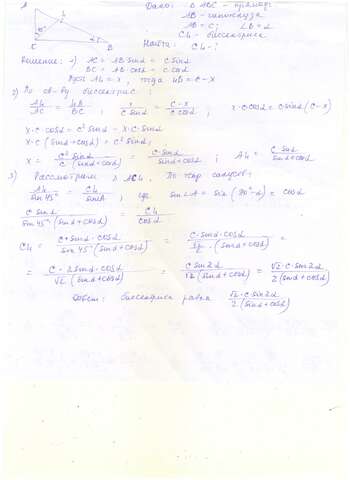 A
L
45°
C
B
Дано: Δ ABC – прямоуг.
AB – гипотенуза
AB = C; ∠B = α
CL – биссектриса
Найти: CL - ?
Решение: 1) AC = AB sinα = c sinα
BC = AB·cosα = c·cosα
Пусть AL = x, тогда LB = c - x
2) По св-ву биссектрис:
AL/AC = LB/BC ; x/(c sinα) = (c-x)/(c cosα) ; x·c cosα = c sinα (c-x)
x·c·cosα = c² sinα - x·c·sinα
x·c (sinα + cosα) = c² sinα;
x = c² sinα / c (sinα + cosα) = c·sinα / (sinα + cosα) ; AL = c·sinα / (sinα + cosα)
3) Рассмотрим Δ ACL. По теор синусов:
AL / sin 45° = CL / sin A, где sin∠A = sin (90°-α) = cosα
c sinα / sin 45° (sinα + cosα) = CL / cosα
CL = c·sinα·cosα / sin 45° (sinα + cosα) = c·sinα·cosα / √2/2 (sinα + cosα) =
= c·2 sinα·cosα / √2 (sinα + cosα) = c sin2α / √2 (sinα + cosα) = √2·c·sin2α / 2 (sinα + cosα)
Ответ: биссектриса равна √2·c sin2α / 2 (sinα + cosα)